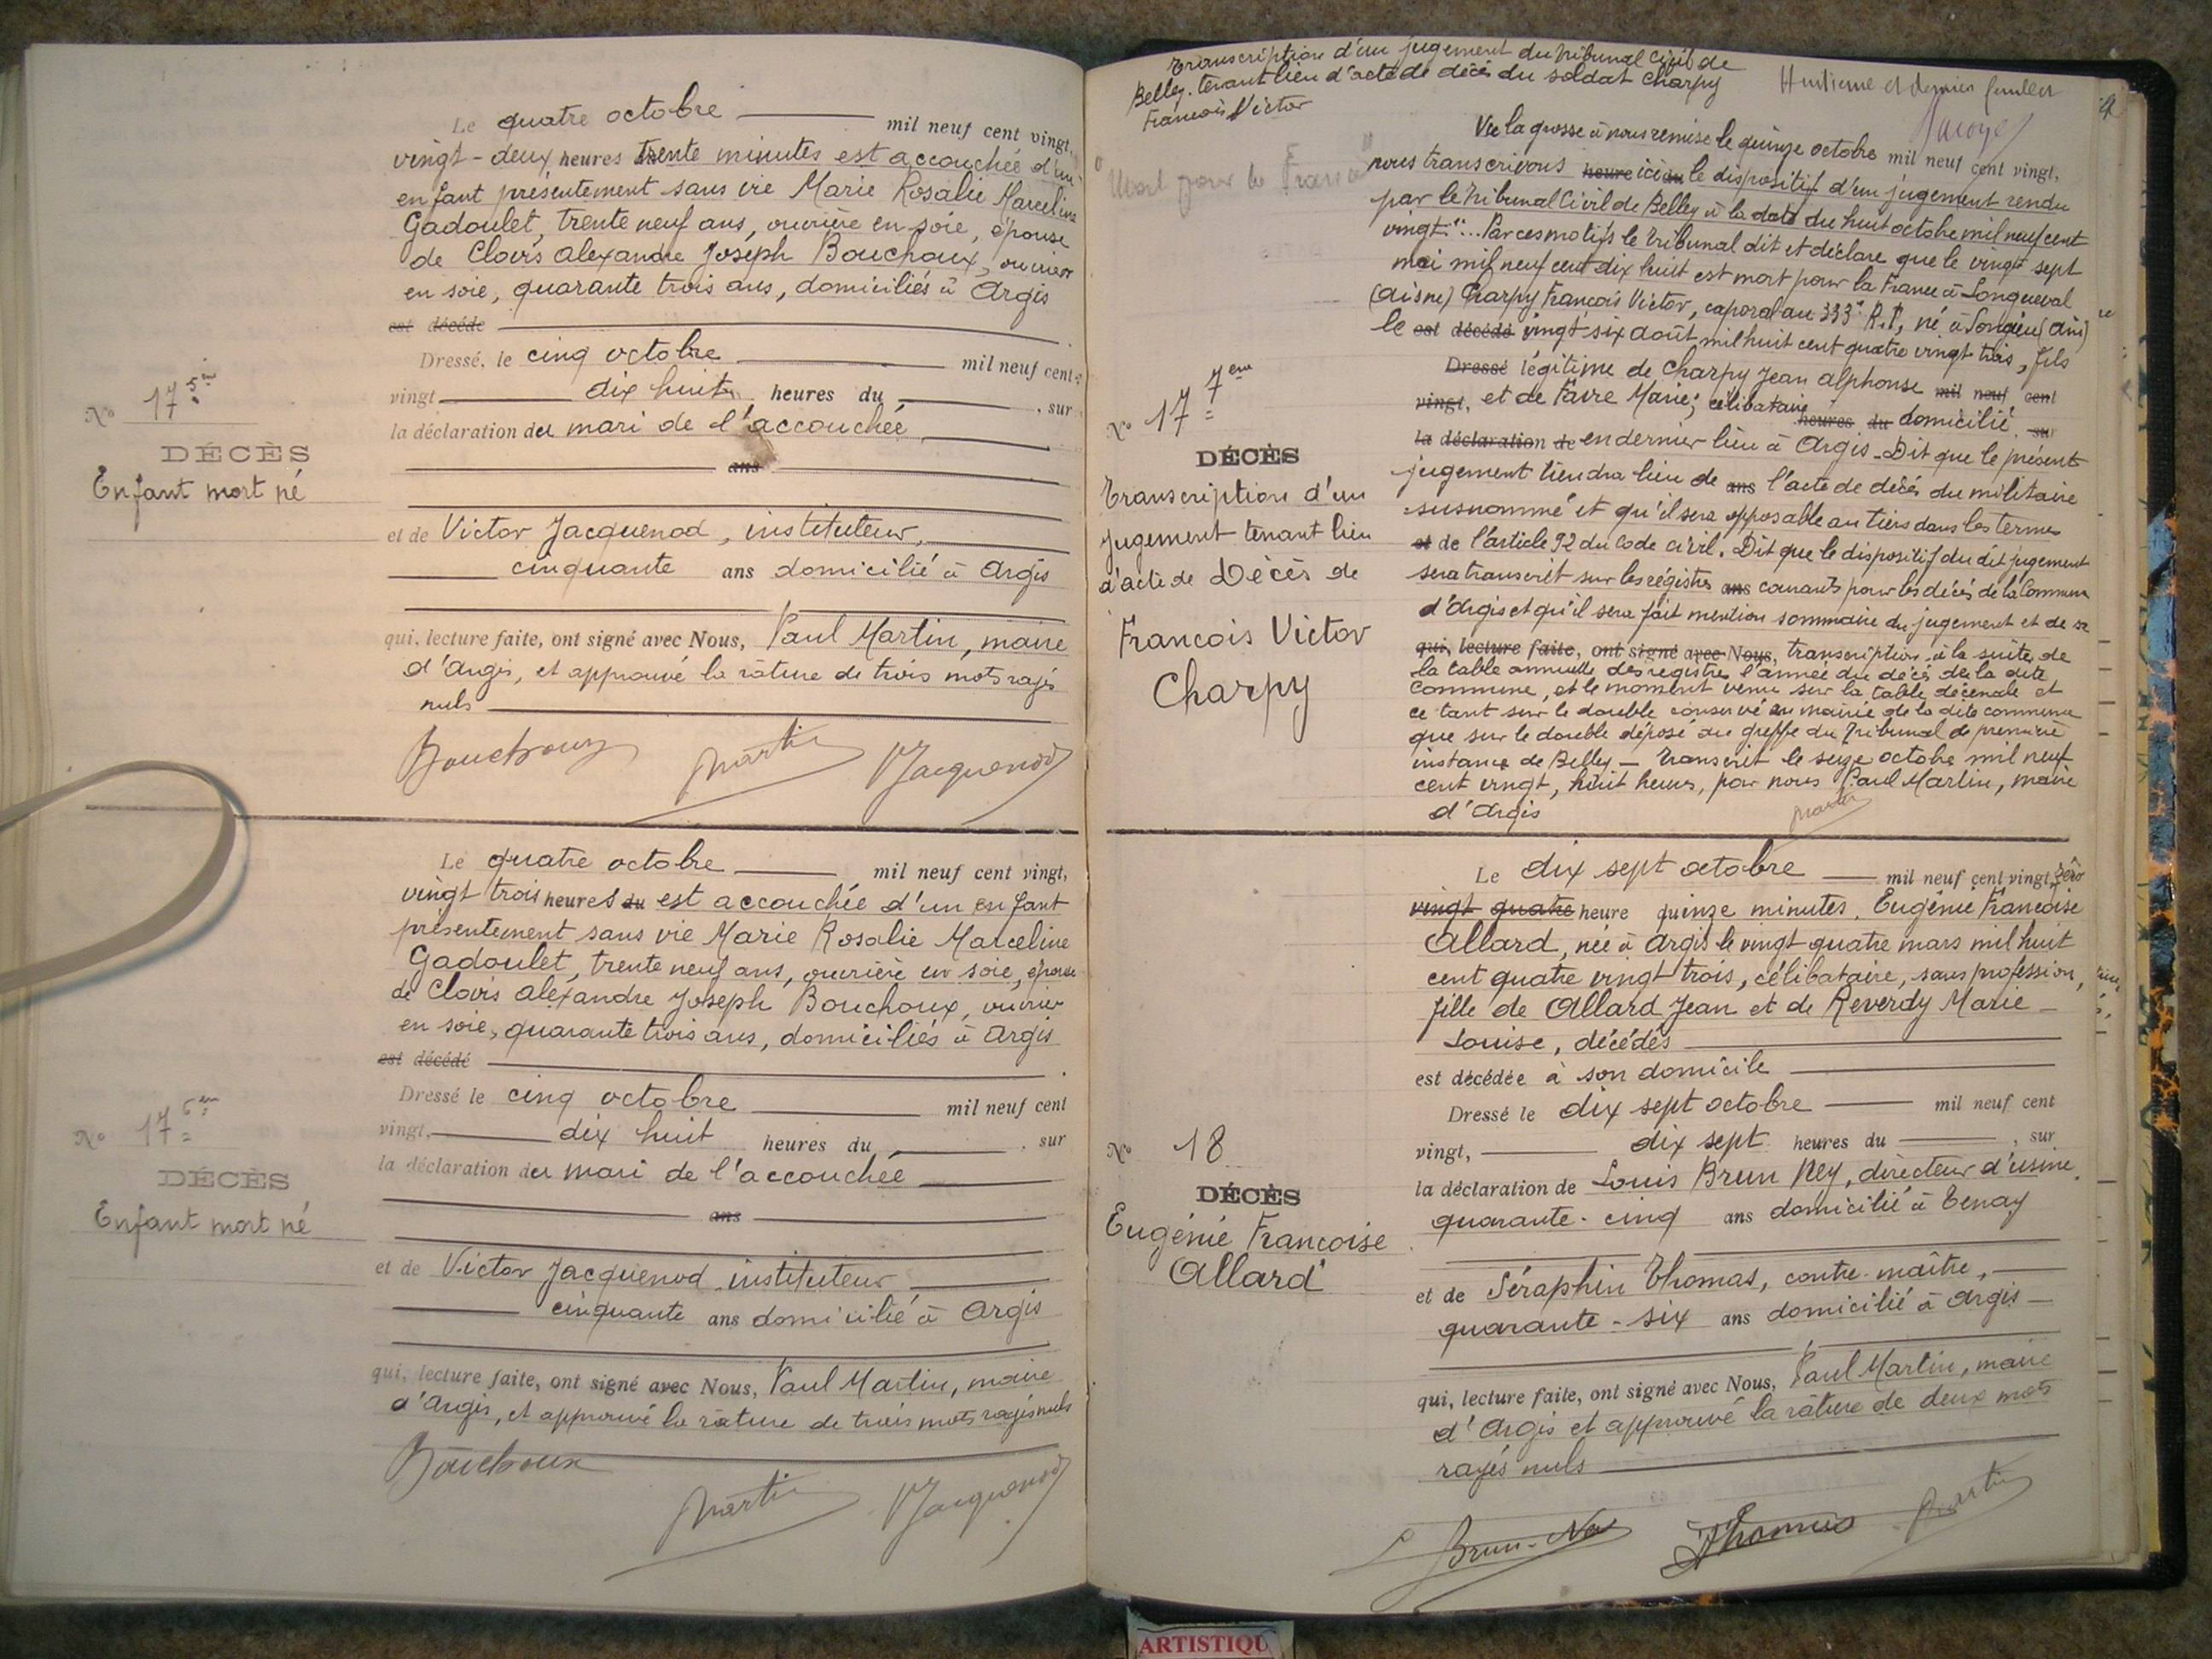 Le quatre octobre mil neuf cent vingt,
vingt-deux heures trente minutes est accouchée d'un
enfant présentement sans vie Marie Rosalie Marceline
Gadoulet, trente neuf ans, ouvrière en soie, épouse
de Clovis Alexandre Joseph Bouchoux, ouvrier
en soie, quarante trois ans, domiciliés à Argis
est décédé
Dressé, le cinq octobre mil neuf cent
vingt dix huit heures du , sur
la déclaration du mari de l'accouchée
ans
et de Victor Jacquenod, instituteur,
cinquante ans domicilié à Argis
qui, lecture faite, ont signé avec Nous, Paul Martin, maire
d'Argis, et approuvé la râture de trois mots rayés
nuls
Bouchoux Martin VJacquenod
N° 17 5ème
DÉCÈS
Enfant mort né
Le quatre octobre mil neuf cent vingt,
vingt trois heures du est accouchée d'un enfant
présentement sans vie Marie Rosalie Marceline
Gadoulet, trente neuf ans, ouvrière en soie, épouse
de Clovis Aléxandre Joseph Bouchoux, ouvrier
en soie, quarante trois ans, domiciliés à Argis
est décédé
Dressé le cinq octobre mil neuf cent
vingt, dix huit heures du , sur
la déclaration du mari de l'accouchée
ans
et de Victor Jacquenod instituteur
cinquante ans domicilié à Argis
qui, lecture faite, ont signé avec Nous, Paul Martin, maire
d'Argis, et approuvé la râture de trois mots rayés nuls
Bouchoux
Martin VJacquenod
N° 17 6ème
DÉCÈS
Enfant mort né
Transcription d'un jugement du Tribunal Civil de
Belley tenant lieu d'acte de décès du soldat Charpy
Francois Victor
Huitième et dernier feuillet
"Mort pour la France"
Vu la grosse à nous remise le quinze octobre mil neuf cent vingt,
nous transcrivons heure ici du le dispositif d'un jugement rendu
par le Tribunal Civil de Belley à la date du huit octobre mil neuf cent
vingt: "... Par ces motifs le Tribunal dit et déclare que le vingt sept
mai mil neuf cent dix huit est mort pour la France à Longueval
(Aisne) Charpy Francois Victor, caporal au 333e R.I, né à Songieu (Ain)
le est décédé vingt six août mil huit cent quatre vingt trois, fils
Dressé légitime de Charpy Jean Alphonse mil neuf cent
vingt, et de Favre Marie; célibataire heures du domicilié sur
la déclaration de en dernier lieu à Argis. Dit que le présent
jugement tiendra lieu de ans l'acte de décès du militaire
susnommé et qu'il sera opposable au tiers dans les termes
et de l'article 92 du Code civil. Dit que le dispositif du dit jugement
sera transcrit sur les régistres ans courants pour les décès de la Commune
d'Argis et qu'il sera fait mention sommaire du jugement et de sa
qui, lecture faite, ont signé avec Nous, transcription à la suite de
la table annuelle des registres l'année du décès de la dite
Commune, et le moment venu sur la table décenale et
ce tant sur le double conservé en mairie de la dite commune
que sur le double déposé au greffe du Tribunal de première
instance de Belley — Transcrit le seize octobre mil neuf
cent vingt, huit heures, par nous Paul Martin, maire
d'Argis Martin
N° 17 7ème
DÉCÈS
Transcription d'un
jugement tenant lieu
d'acte de Décès de
Francois Victor
Charpy
Le dix sept octobre mil neuf cent vingt, zéro
vingt quatre heure quinze minutes, Eugénie Francoise
Allard, née à Argis le vingt quatre mars mil huit
cent quatre vingt trois, célibataire, sans profession,
fille de Allard Jean et de Reverdy Marie
Louise, décédés
est décédée à son domicile
Dressé le dix sept octobre mil neuf cent
vingt, dix sept heures du , sur
la déclaration de Louis Brun Ney, directeur d'usine
quarante-cinq ans domicilié à Tenay
et de Séraphin Thomas, contre-maître,
quarante-six ans domicilié à Argis
qui, lecture faite, ont signé avec Nous, Paul Martin, maire
d'Argis et approuvé la râture de deux mots
rayés nuls
L Brun-Ney Thomas Martin
N° 18
DÉCÈS
Eugénie Francoise
Allard
ARTISTIQU